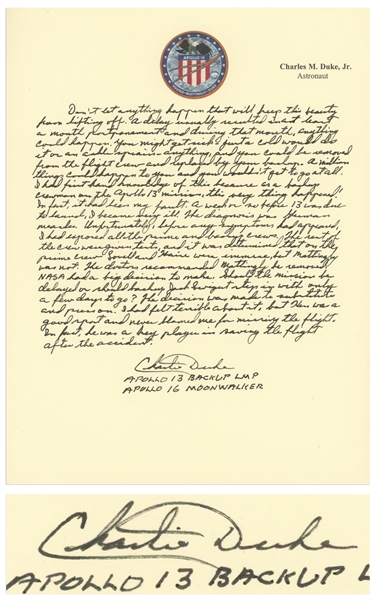 APOLLO 16
Charles M. Duke, Jr.
Astronaut
Don't let anything happen that will keep this beauty
from lifting off. A delay usually resulted in at least
a month postponement and during that month, anything
could happen. You might get sick, just a cold would do
it or an ankle sprain - anything, and you could be removed
from the flight crew and replaced by your backup. A million
things could happen to you and you wouldn't get to go at all.
I had first hand knowledge of this because as a backup
crewman on the Apollo 13 mission, this very thing happened!
In fact, it had been my fault. A week or so before 13 was due
to launch, I became very ill. The diagnosis was German
measles. Unfortunately, before any symptoms had appeared,
I had exposed all the prime and backup crews. The rest of
the crew was given tests, and it was determined that on the
prime crew Lovell and Haise were immune, but Mattingly
was not. The doctors recommended Mattingly be removed.
NASA had a big decision to make. Should the mission be
delayed or should backup Jack Swigert step in with only
a few days to go? The decision was made to substitute
and press on. I had felt terrible about it, but Ken was a
good sport and never blamed me for missing the flight.
In fact, he was a key player in saving the flight
after the accident.
Charlie Duke
APOLLO 13 BACKUP LMP
APOLLO 16 MOONWALKER
Charlie Duke
APOLLO 13 BACKUP L